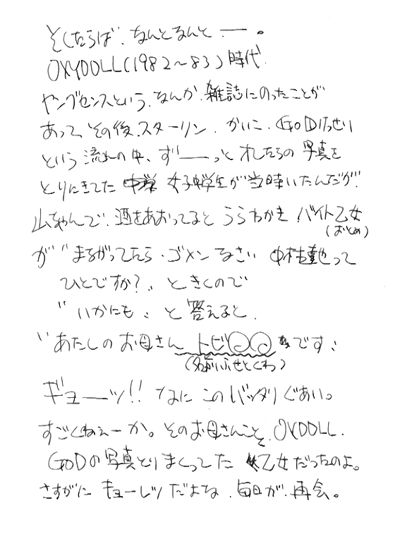 そしたらば、なんとなんとー。
OXYDOLL(1982～83)時代
ヤングセンスという、なんか、雑誌にのったことが
あって、その後、スターリン、かいこ、GOD けっせい
という流れの中、ずーーっとオレたちの写真を
とりにきてた 女子学生が当時いたんだが、
山ちゃんで、酒をあおってると うらわかき バイト乙女
(おとめ)
が "まちがってたら、ゴメンなさい 中村達也って
ひとですか?" ときくので
"いかにも" と答えると、
"あたしのお母さん トビ○○ です"
(名前いふせとくわ)
ギョーッ!! なに このバッタリぐあい。
すごくねぇーか。そのお母さんこと、OXYDOLL、
GODの写真とりまくってた 乙女だったのよ。
さすがに キョーレツだよな、毎日が、再会。